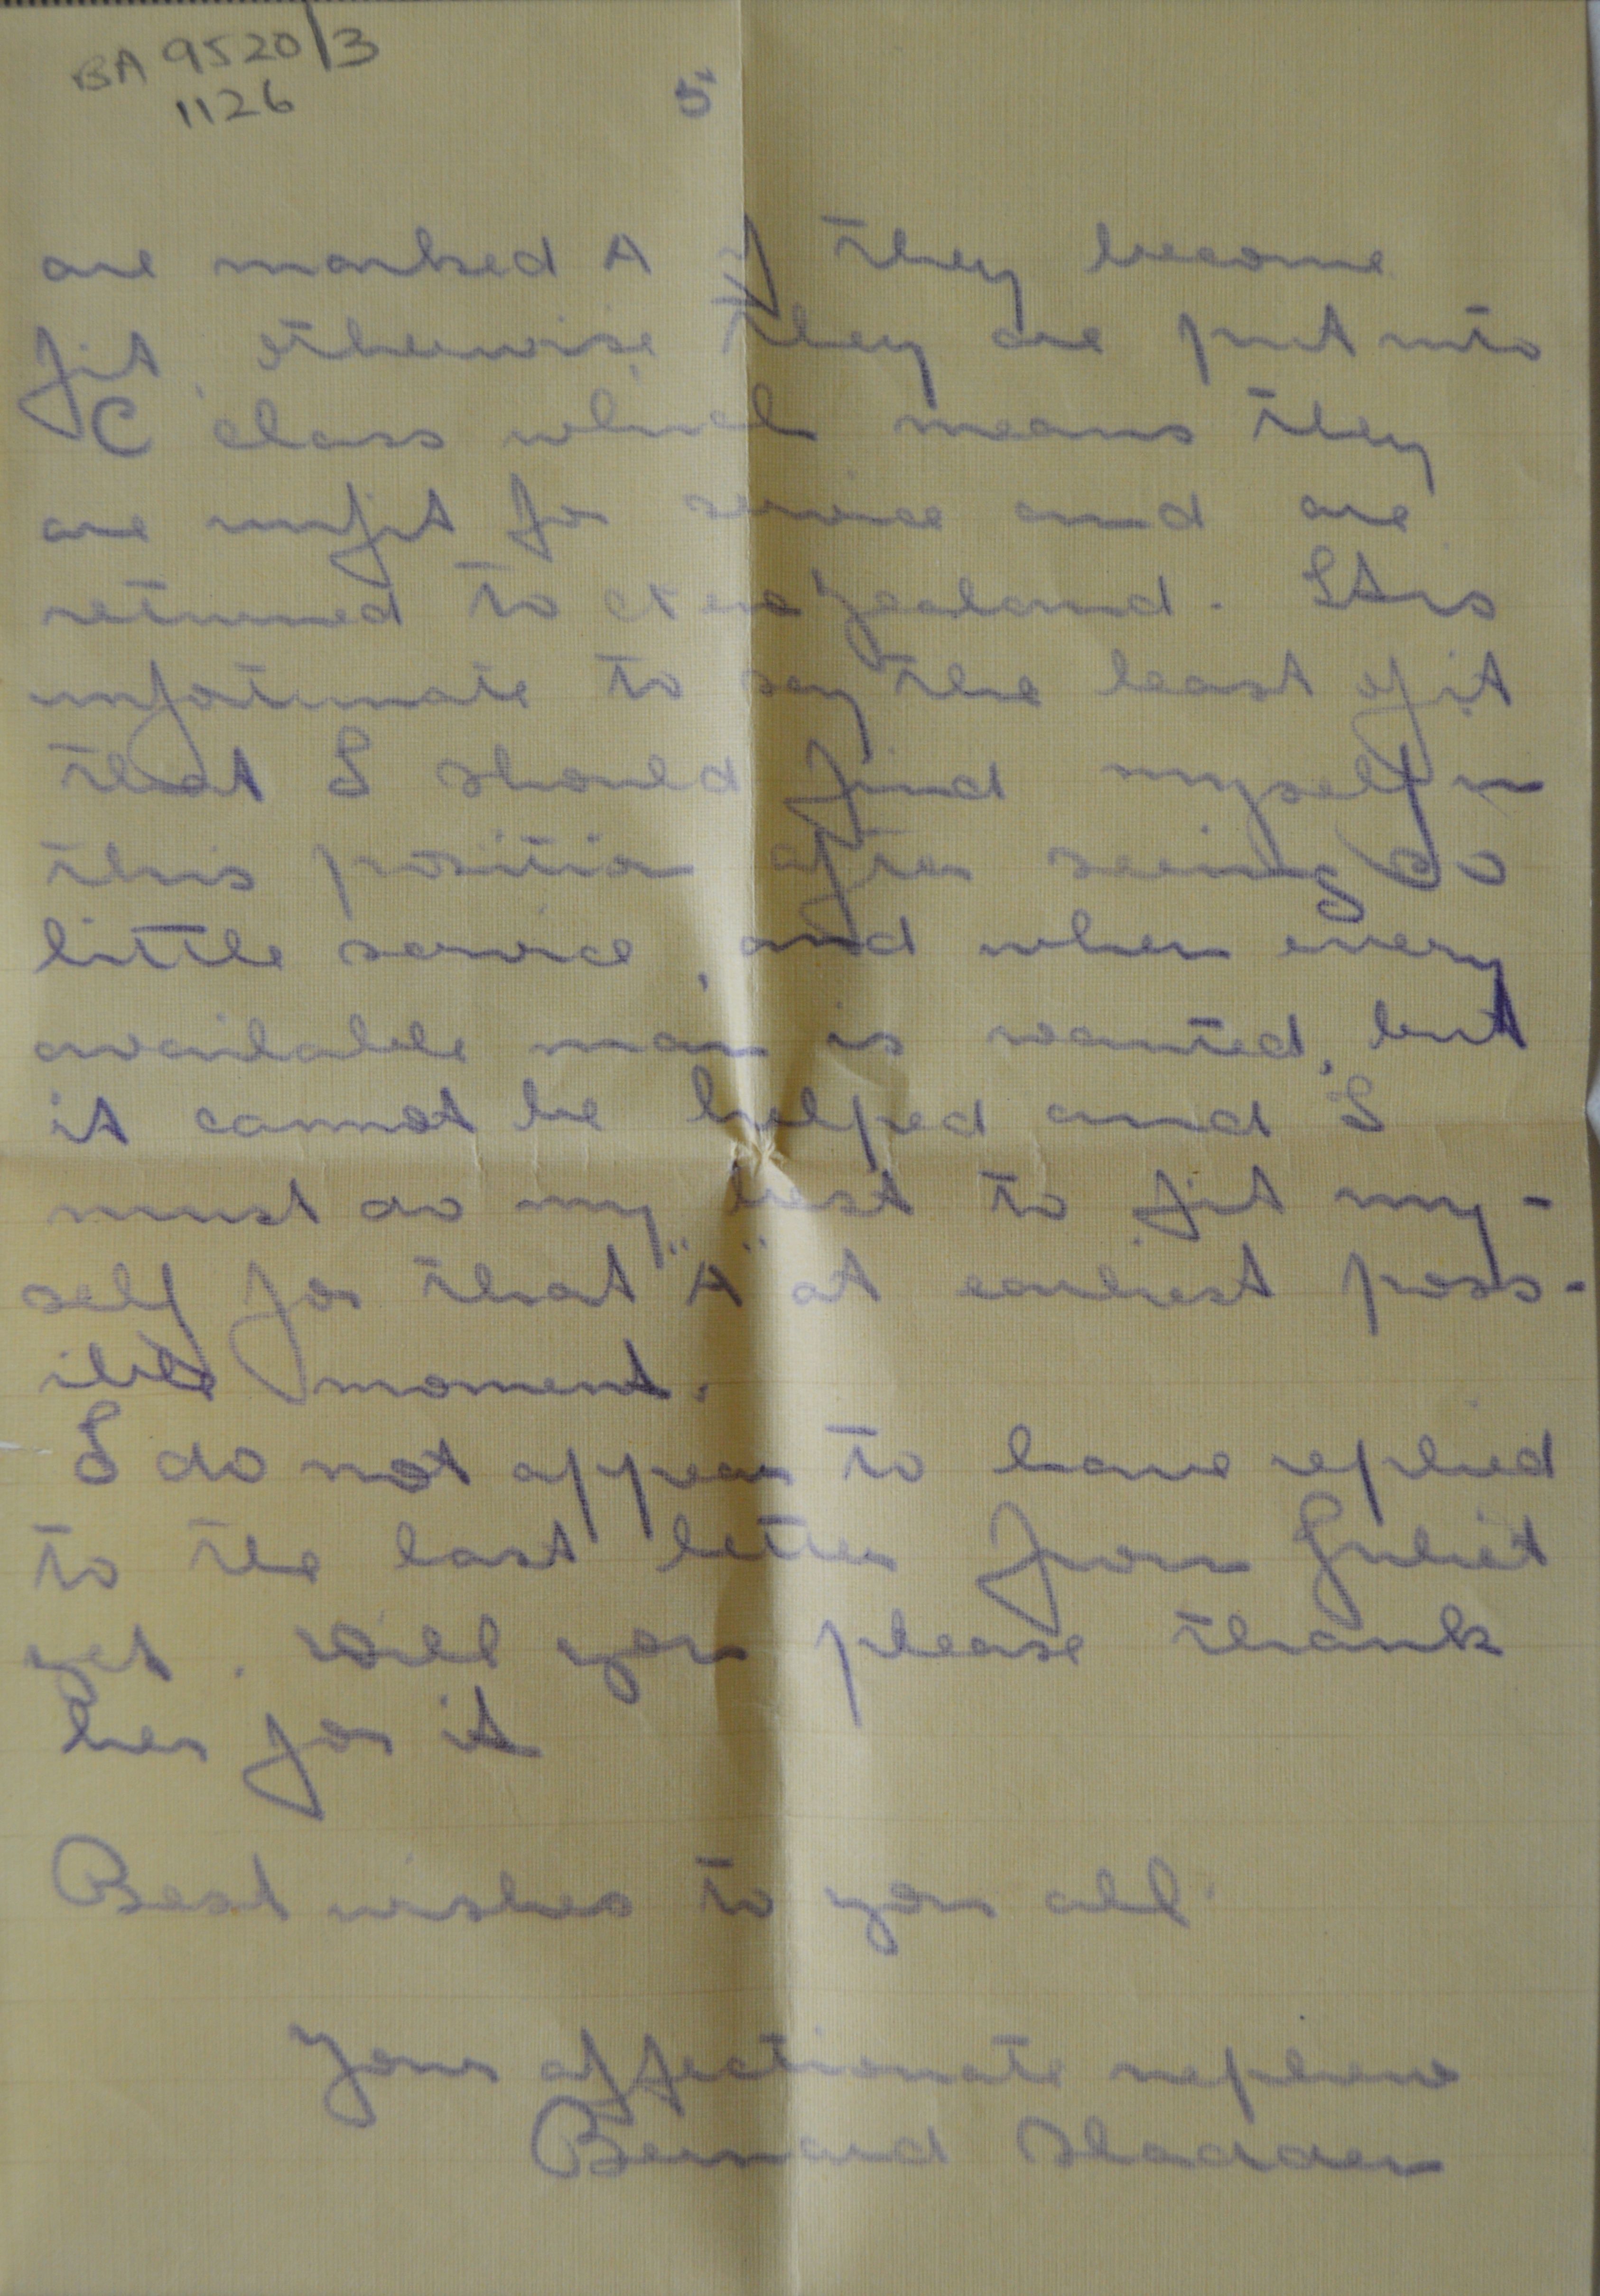 BA 9520/3
1126
5
are marked A if they become
fit, otherwise they are put into
C class which means they
are unfit for service and are
returned to New Zealand. It is
unfortunate to say the least of it
that I should find myself in
this position after seeing so
little service, and when every
available man is wanted, but
it cannot be helped and I
must do my best to fit my-
self for that "A" at earliest poss-
ible moment.
I do not appear to have replied
to the last letter from Juliet
yet. Will you please thank
her for it
Best wishes to you all.
Your affectionate nephew
Bernard Sladden